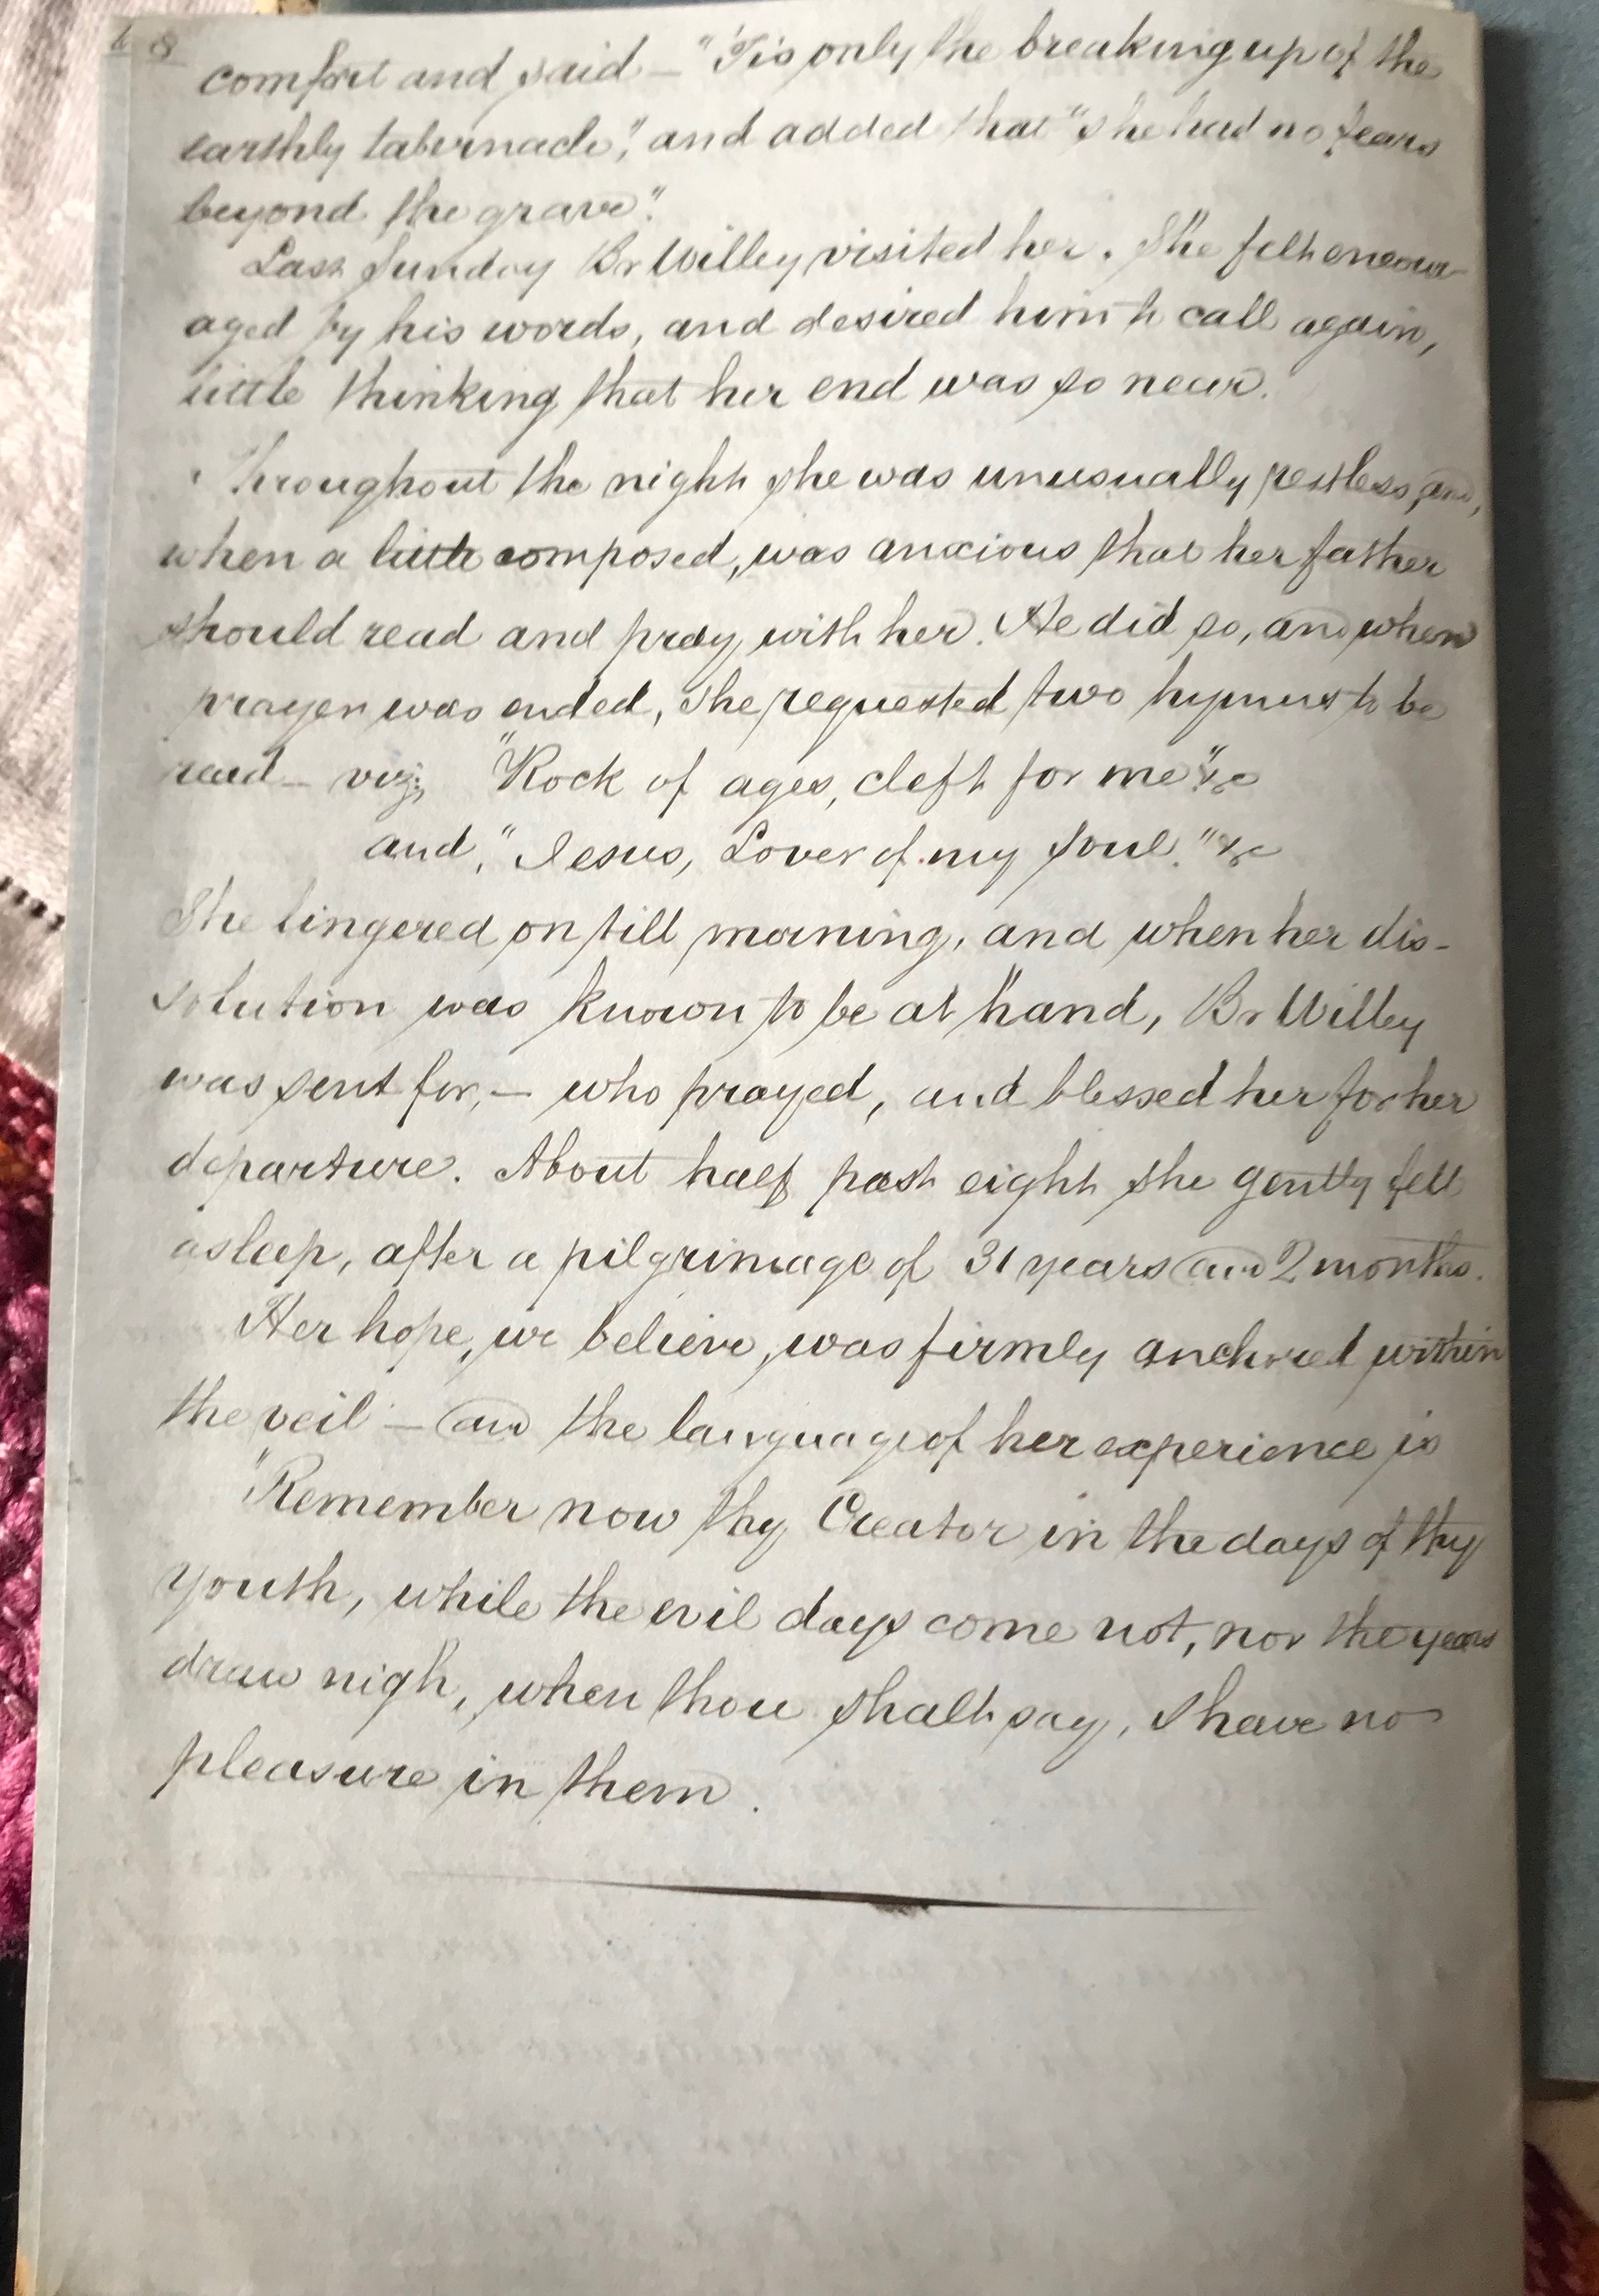 8
comfort and said — "Tis only the breaking up of the
earthly tabernacle," and added that "she had no fears
beyond the grave".
Last Sunday Br Willey visited her. She felt encour-
aged by his words, and desired him to call again,
little thinking that her end was so near.
Throughout the night she was unusually restless, and,
when a little composed, was anxious that her father
should read and pray with her. He did so, and when
prayer was ended, she requested two hymns to be
read — viz; "Rock of ages, cleft for me" &c
and, "Jesus, Lover of my soul." &c
She lingered on till morning, and when her dis-
solution was known to be at hand, Br Willey
was sent for, — who prayed, and blessed her for her
departure. About half past eight she gently fell
asleep, after a pilgrimage of 31 years and 2 months.
Her hope, we believe, was firmly anchored within
the veil — and the language of her experience is
"Remember now thy Creator in the days of thy
youth, while the evil days come not, nor the years
draw nigh, when thou shalt say, I have no
pleasure in them.